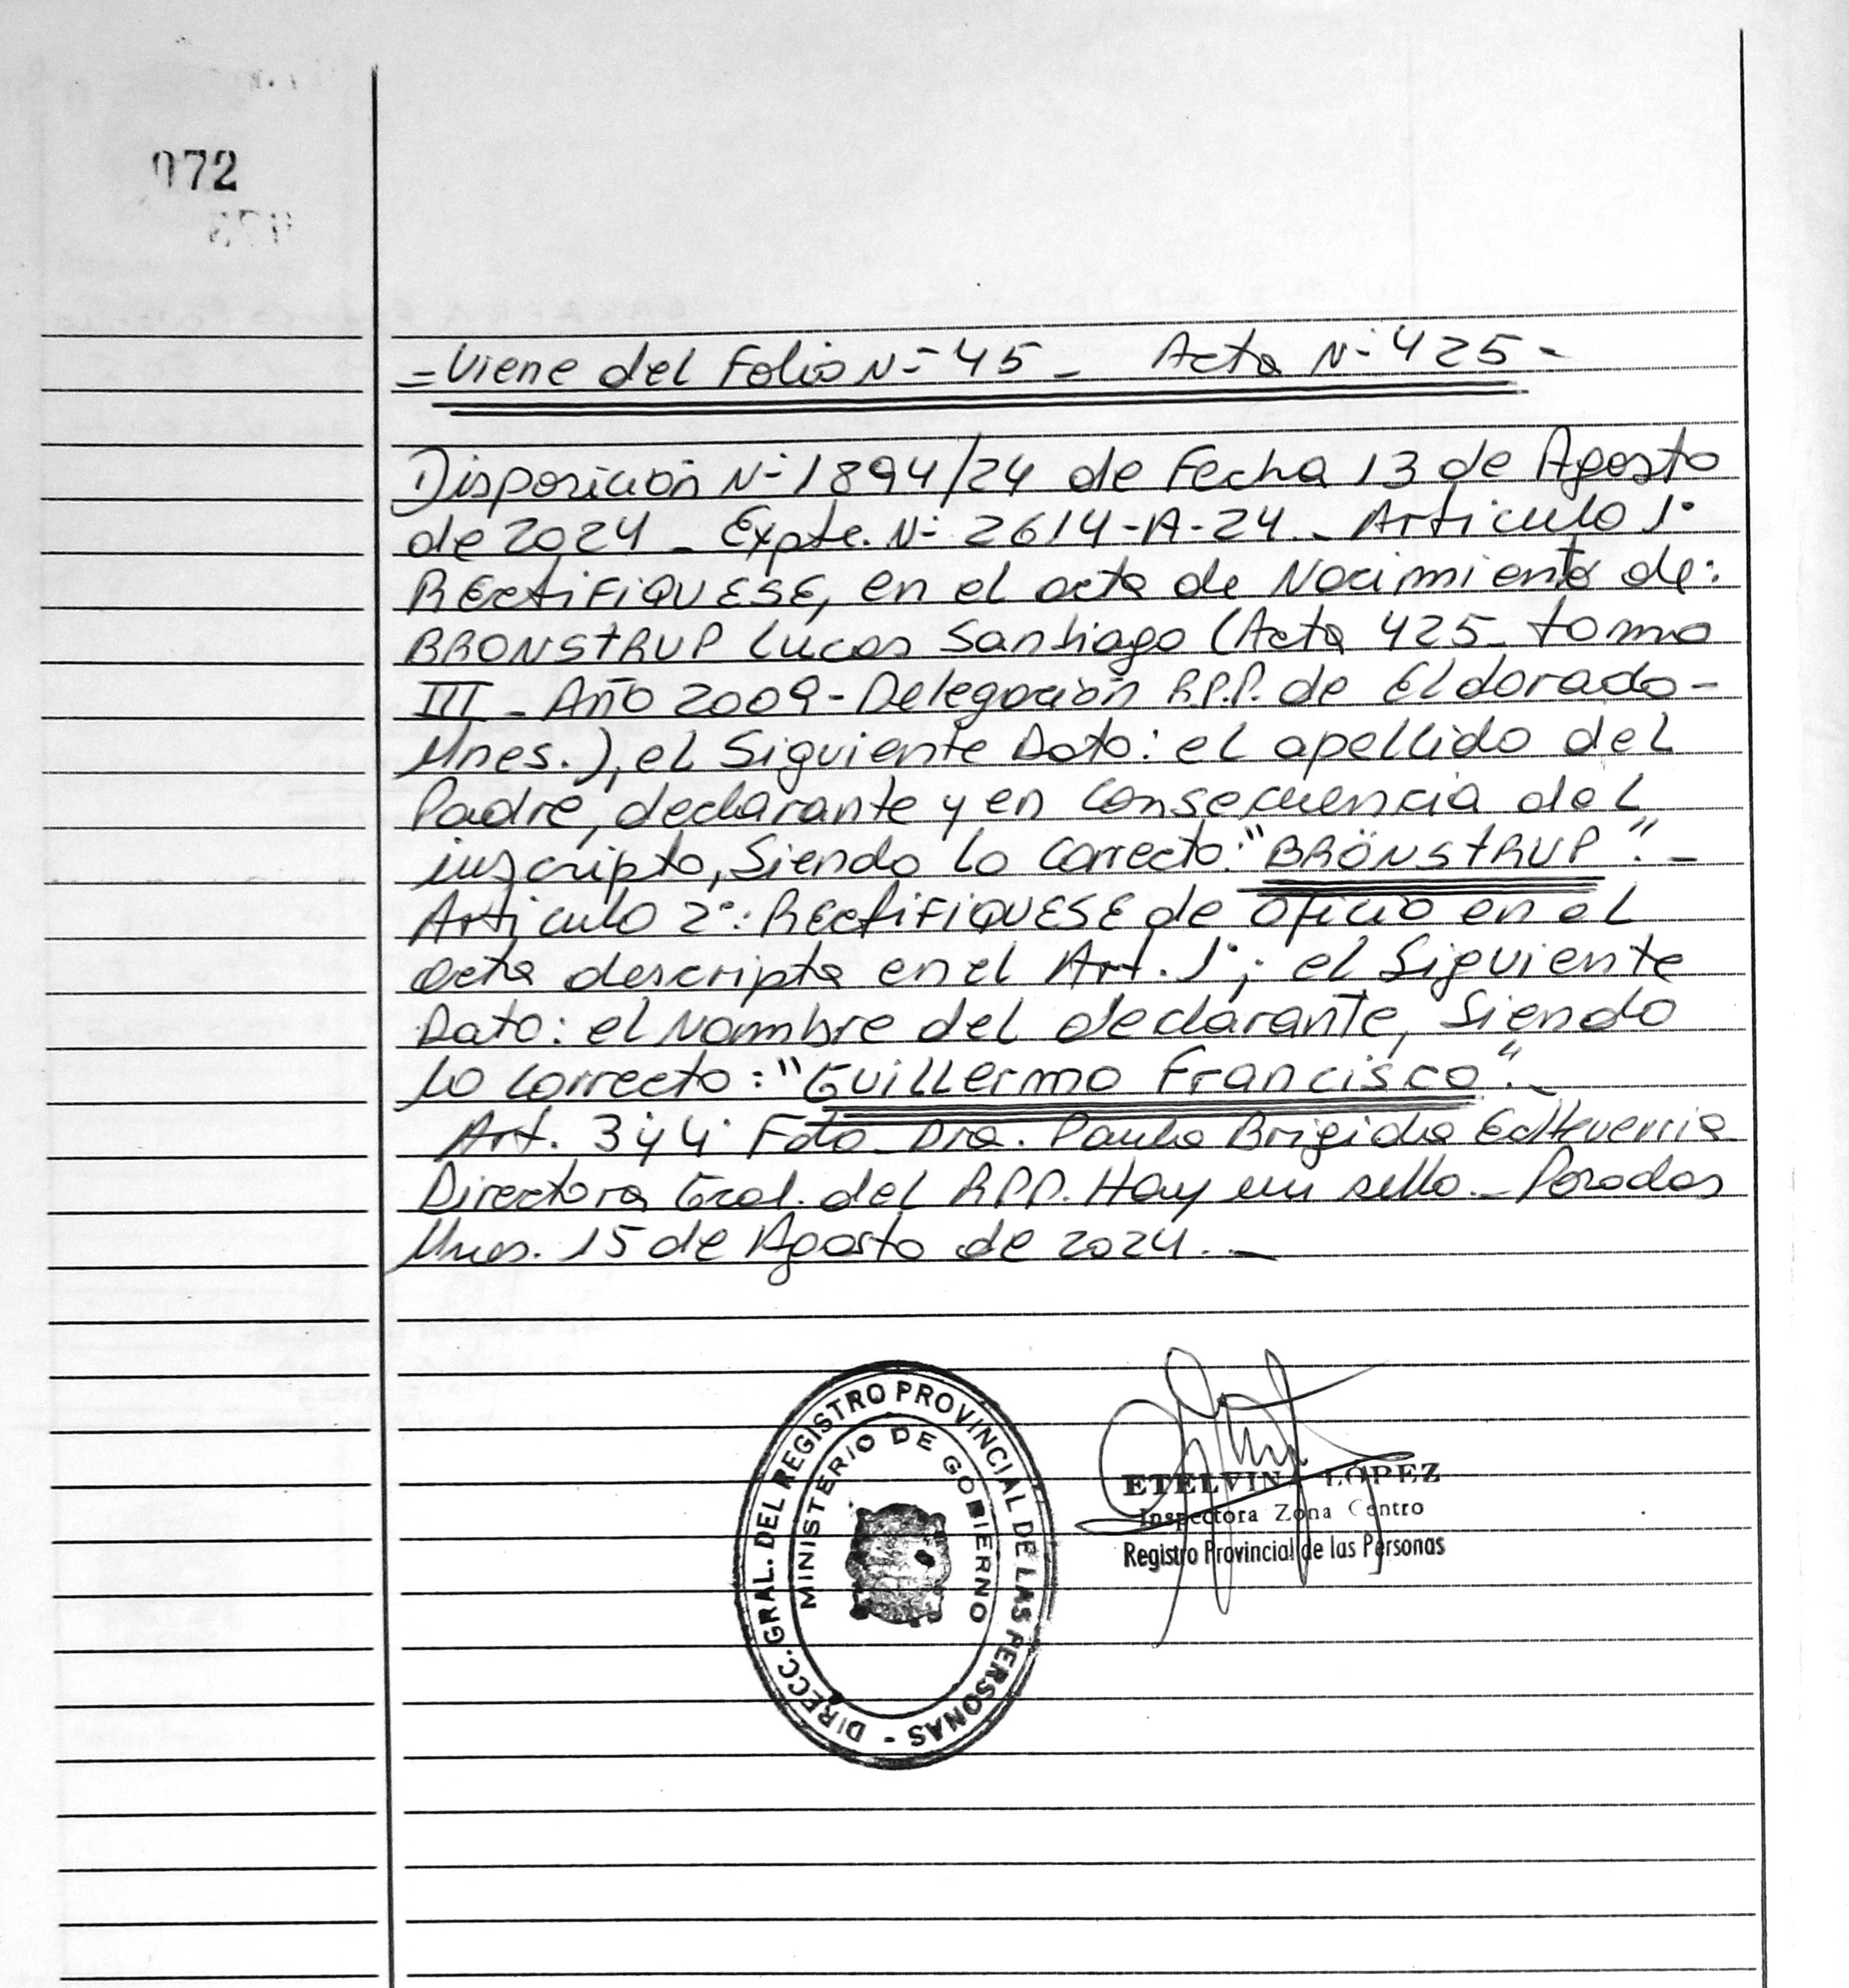 072
= Viene del Folio N° 45 - Acta N° 425 -
Disposición N° 1894/24 de Fecha 13 de Agosto
de 2024 - Expte. N° 2614-A-24 - Articulo 1°
RECTIFIQUESE, en el acta de Nacimiento de:
BRONSTRUP Lucas Santiago (Acta 425 - tomo
III - Año 2009 - Delegación R.P.P. de Eldorado -
Mnes.), el Siguiente Dato: el apellido del
Padre, declarante y en consecuencia del
inscripto, Siendo lo correcto: "BRÖNSTRUP". -
Articulo 2°: RECTIFIQUESE de oficio en el
acta descripta en el Art. 1°; el Siguiente
Dato: el Nombre del declarante, Siendo
lo correcto: "Guillermo Francisco". -
Art. 3 y 4 Fdo - Dra. Paula Brigida Echeverria
Directora Gral. del RPP. Hay un sello. - Posadas
Mnes. 15 de Agosto de 2024. -
DIRECC. GRAL. DEL REGISTRO PROVINCIAL DE LAS PERSONAS -
MINISTERIO DE GOBIERNO
ETELVINA LOPEZ
Inspectora Zona Centro
Registro Provincial de las Personas